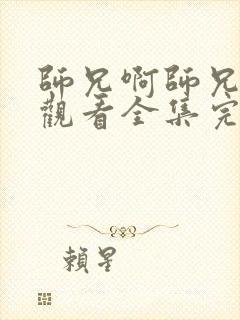 師兄啊師兄
觀看全集完
賴星